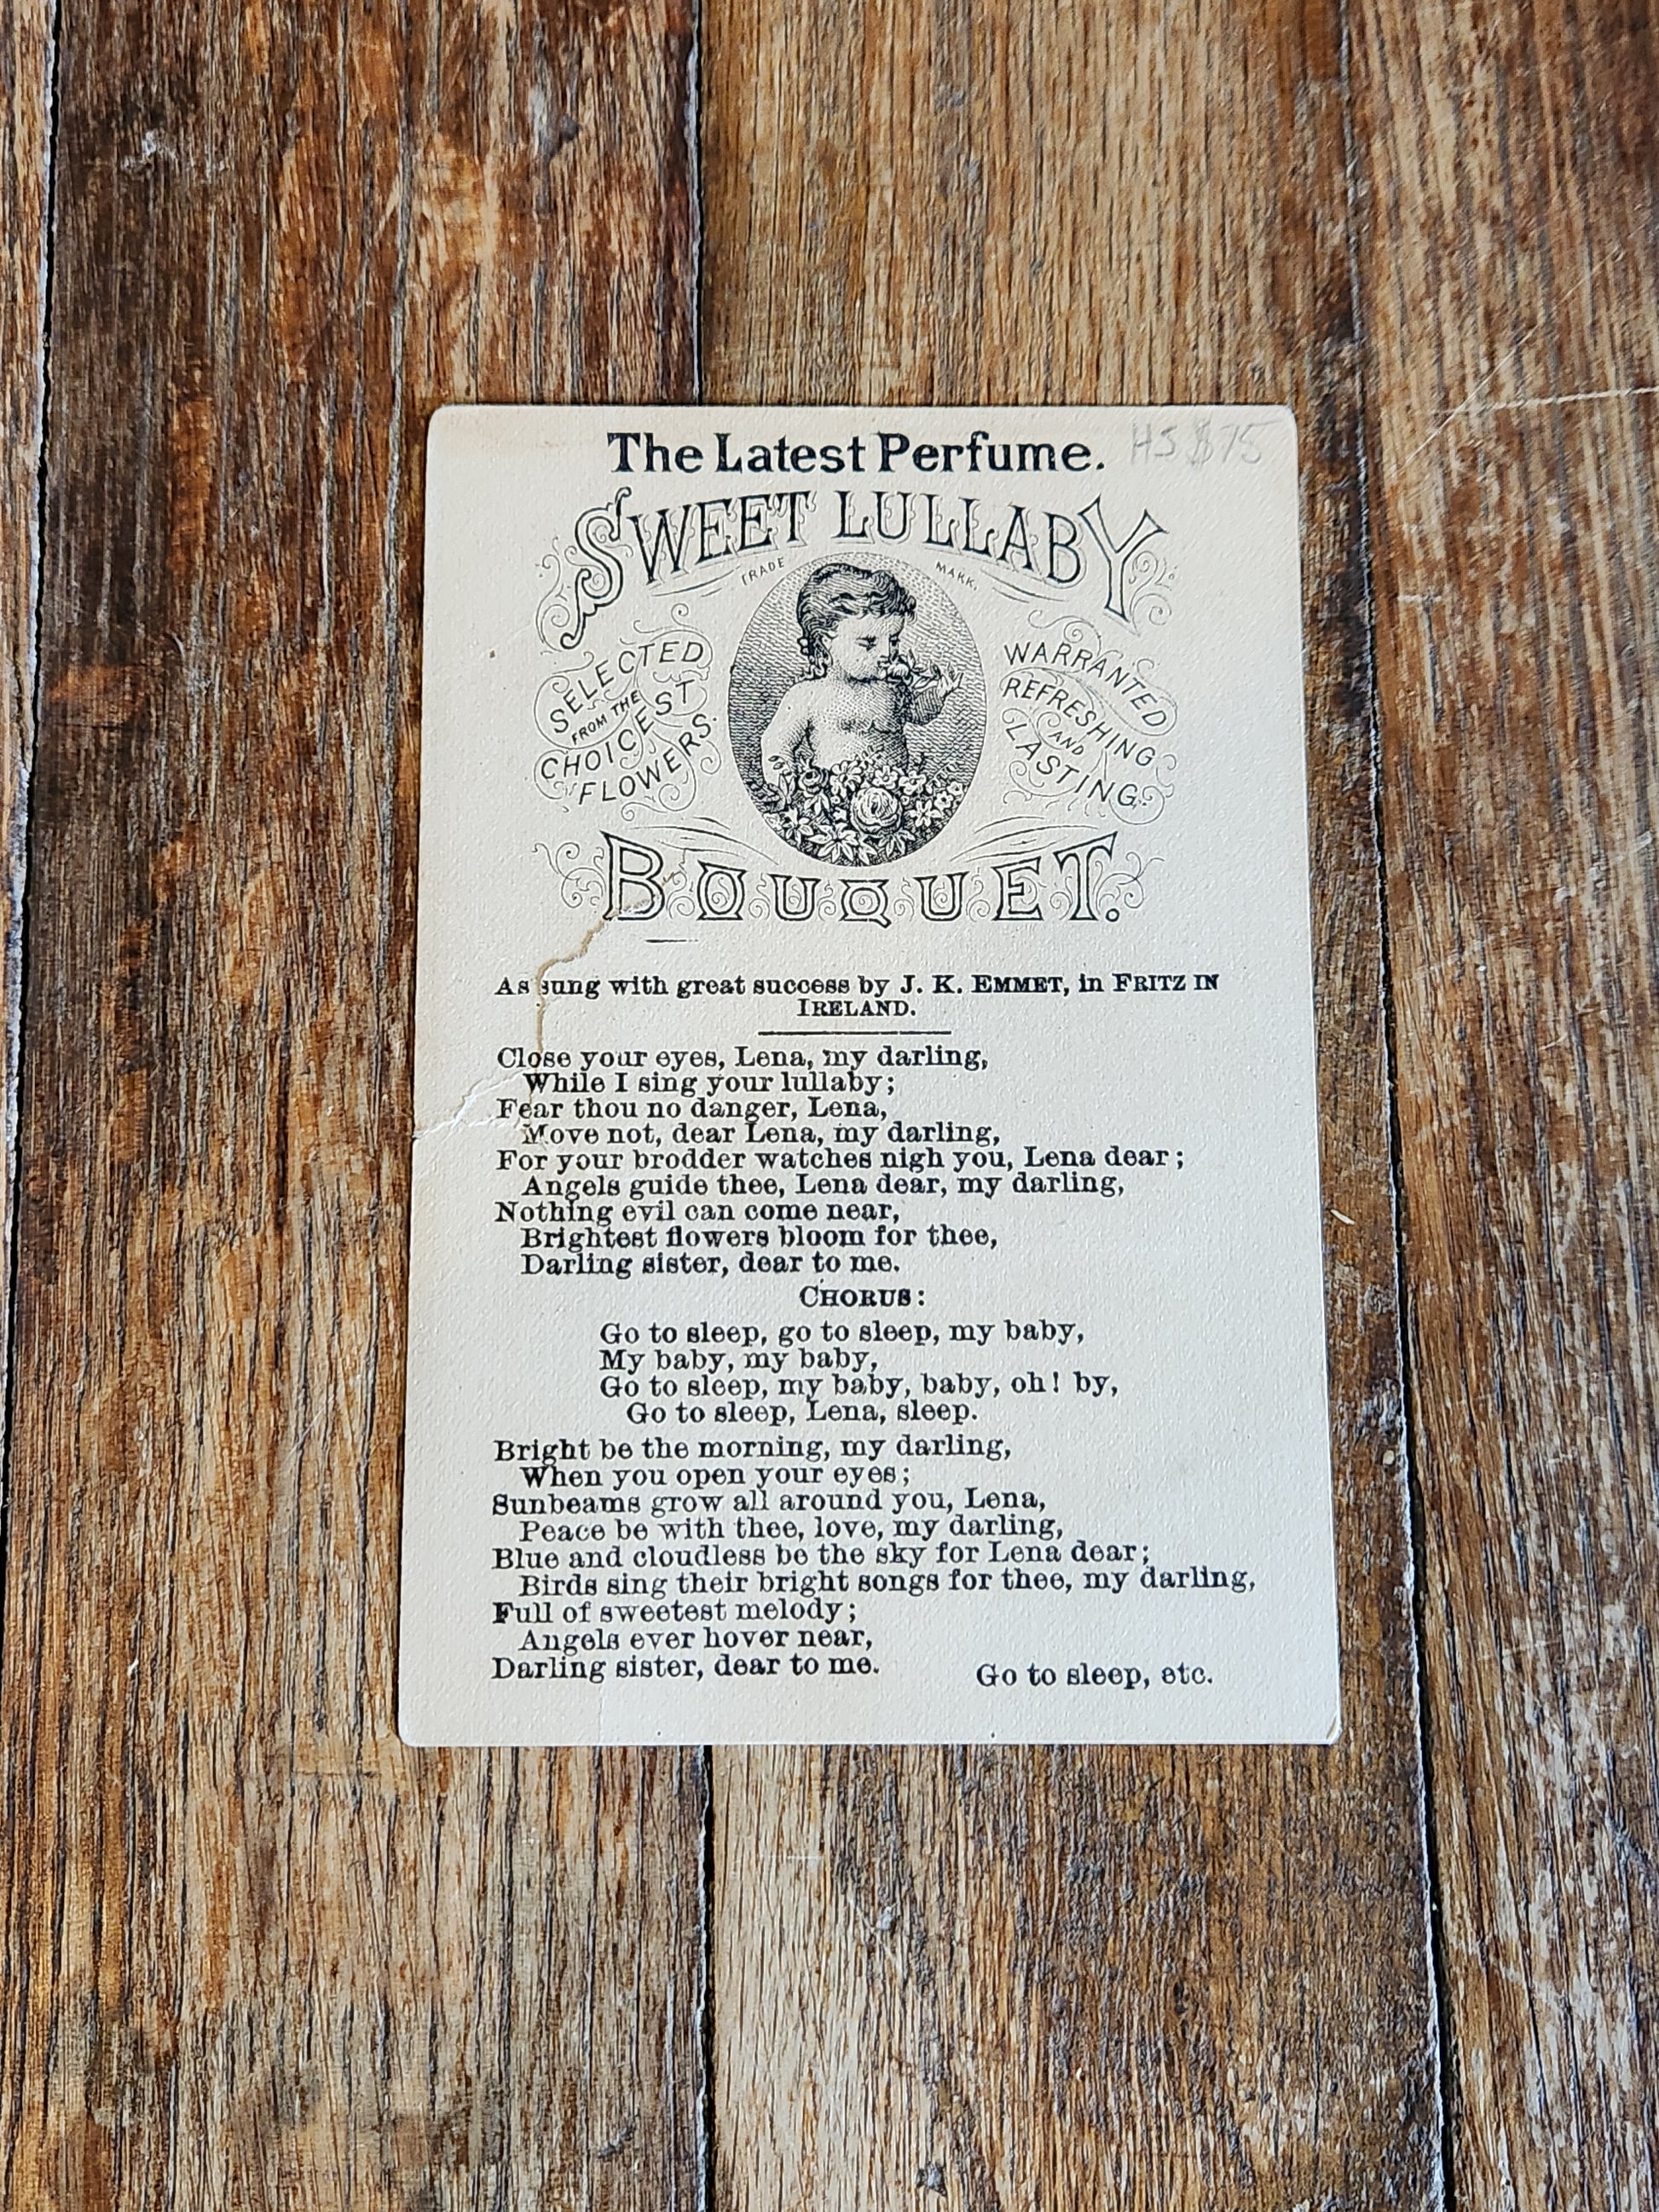 The Latest Perfume. HS $75
SWEET LULLABY
TRADE MARK.
SELECTED
FROM THE
CHOICEST
FLOWERS.
WARRANTED
REFRESHING
AND
LASTING.
BOUQUET.
As sung with great success by J. K. EMMET, in FRITZ IN
IRELAND.
Close your eyes, Lena, my darling,
While I sing your lullaby;
Fear thou no danger, Lena,
Move not, dear Lena, my darling,
For your brodder watches nigh you, Lena dear;
Angels guide thee, Lena dear, my darling,
Nothing evil can come near,
Brightest flowers bloom for thee,
Darling sister, dear to me.
CHORUS:
Go to sleep, go to sleep, my baby,
My baby, my baby,
Go to sleep, my baby, baby, oh! by,
Go to sleep, Lena, sleep.
Bright be the morning, my darling,
When you open your eyes;
Sunbeams grow all around you, Lena,
Peace be with thee, love, my darling,
Blue and cloudless be the sky for Lena dear;
Birds sing their bright songs for thee, my darling,
Full of sweetest melody;
Angels ever hover near,
Darling sister, dear to me.
Go to sleep, etc.